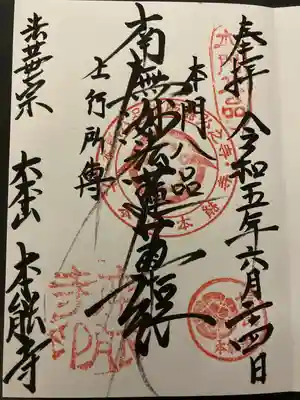 奉拝 令和五年六月二十四日
本門八品
上行所傳
南無妙法蓮華経
法華宗 大本山 本能寺